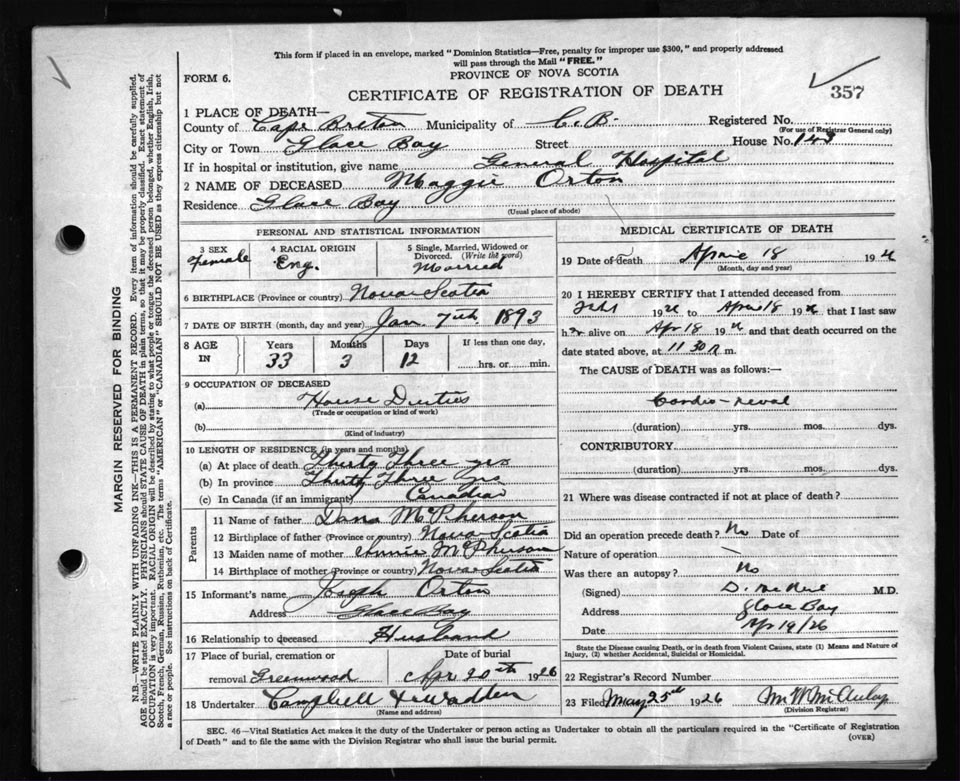 This form if placed in an envelope, marked "Dominion Statistics—Free, penalty for improper use $300," and properly addressed
will pass through the Mail "FREE."
FORM 6.
PROVINCE OF NOVA SCOTIA
CERTIFICATE OF REGISTRATION OF DEATH
357
1 PLACE OF DEATH—
County of Cape Breton Municipality of C.B. Registered No.
(For use of Registrar General only)
City or Town Glace Bay Street House No.
If in hospital or institution, give name General Hospital
2 NAME OF DECEASED Maggie Orton
Residence Glace Bay
(Usual place of abode)
PERSONAL AND STATISTICAL INFORMATION
3 SEX Female
4 RACIAL ORIGIN Eng.
5 Single, Married, Widowed or
Divorced. (Write the word)
Married
6 BIRTHPLACE (Province or country) Nova Scotia
7 DATE OF BIRTH (month, day and year) Jan. 7th 1893
8 AGE IN
Years Months Days
33 3 12
If less than one day,
hrs. or min.
9 OCCUPATION OF DECEASED
(a) House Duties
(Trade or occupation or kind of work)
(b)
(Kind of industry)
10 LENGTH OF RESIDENCE (in years and months)
(a) At place of death Thirty Three yrs
(b) In province Thirty Three yrs
(c) In Canada (if an immigrant) Canadian
Parents
11 Name of father Dana McPherson
12 Birthplace of father (Province or country) Nova Scotia
13 Maiden name of mother Annie McPherson
14 Birthplace of mother (Province or country) Nova Scotia
15 Informant's name Joseph Orton
Address Glace Bay
16 Relationship to deceased Husband
17 Place of burial, cremation or Date of burial
removal Greenwood Apr 20th 1926
18 Undertaker Campbell & Wadden
(Name and address)
MEDICAL CERTIFICATE OF DEATH
19 Date of death April 18 192
(Month, day and year)
20 I HEREBY CERTIFY that I attended deceased from
192 to April 18 192 that I last saw
her alive on Apr 18 192 and that death occurred on the
date stated above, at 11 30 m.
The CAUSE of DEATH was as follows:—
Cardio-renal
(duration) yrs. mos. dys.
CONTRIBUTORY
(duration) yrs. mos. dys.
21 Where was disease contracted if not at place of death?
Did an operation precede death? No Date of
Nature of operation —
Was there an autopsy? No
(Signed) D. McNeil M.D.
Address Glace Bay
Date Apr 19/26
State the Disease causing Death, or in death from Violent Causes, state (1) Means and Nature of
Injury, (2) whether Accidental, Suicidal or Homicidal.
22 Registrar's Record Number
23 Filed May 25th 1926
(Division Registrar)
SEC. 46—Vital Statistics Act makes it the duty of the Undertaker or person acting as Undertaker to obtain all the particulars required in the "Certificate of Registration
of Death" and to file the same with the Division Registrar who shall issue the burial permit.
(OVER)
MARGIN RESERVED FOR BINDING
N.B.—WRITE PLAINLY WITH UNFADING INK—THIS IS A PERMANENT RECORD. Every item of information should be carefully supplied.
AGE should be stated EXACTLY. PHYSICIANS should STATE CAUSE OF DEATH in plain terms, so that it may be properly classified. Exact statement of
OCCUPATION is very important. RACIAL ORIGIN will be described by stating to what people or tongue the deceased person belonged, whether English, Irish,
Scotch, French, German, Russian, Ruthenian, etc. The terms "AMERICAN" or "CANADIAN" SHOULD NOT BE USED as they express citizenship but not
a race or people. See instructions on back of Certificate.